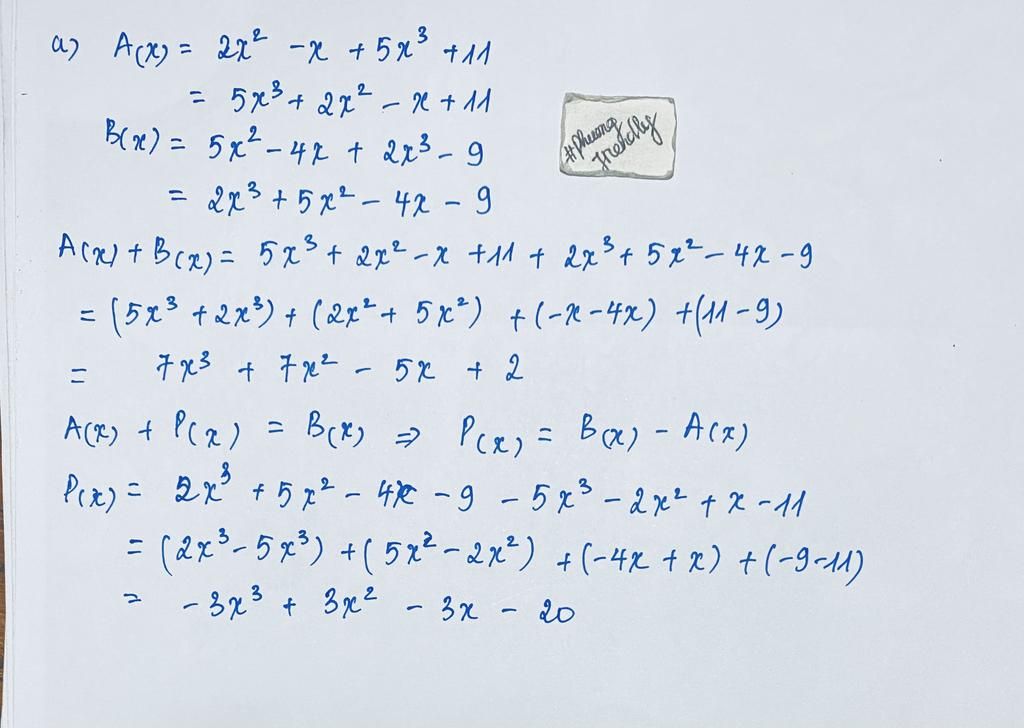 a) A(x) = 2x² - x + 5x³ + 11
= 5x³ + 2x² - x + 11
B(x) = 5x² - 4x + 2x³ - 9
= 2x³ + 5x² - 4x - 9
A(x) + B(x) = 5x³ + 2x² - x + 11 + 2x³ + 5x² - 4x - 9
= (5x³ + 2x³) + (2x² + 5x²) + (-x - 4x) + (11 - 9)
= 7x³ + 7x² - 5x + 2
A(x) + P(x) = B(x) ⇒ P(x) = B(x) - A(x)
P(x) = 2x³ + 5x² - 4x - 9 - 5x³ - 2x² + x - 11
= (2x³ - 5x³) + (5x² - 2x²) + (-4x + x) + (-9 - 11)
= -3x³ + 3x² - 3x - 20